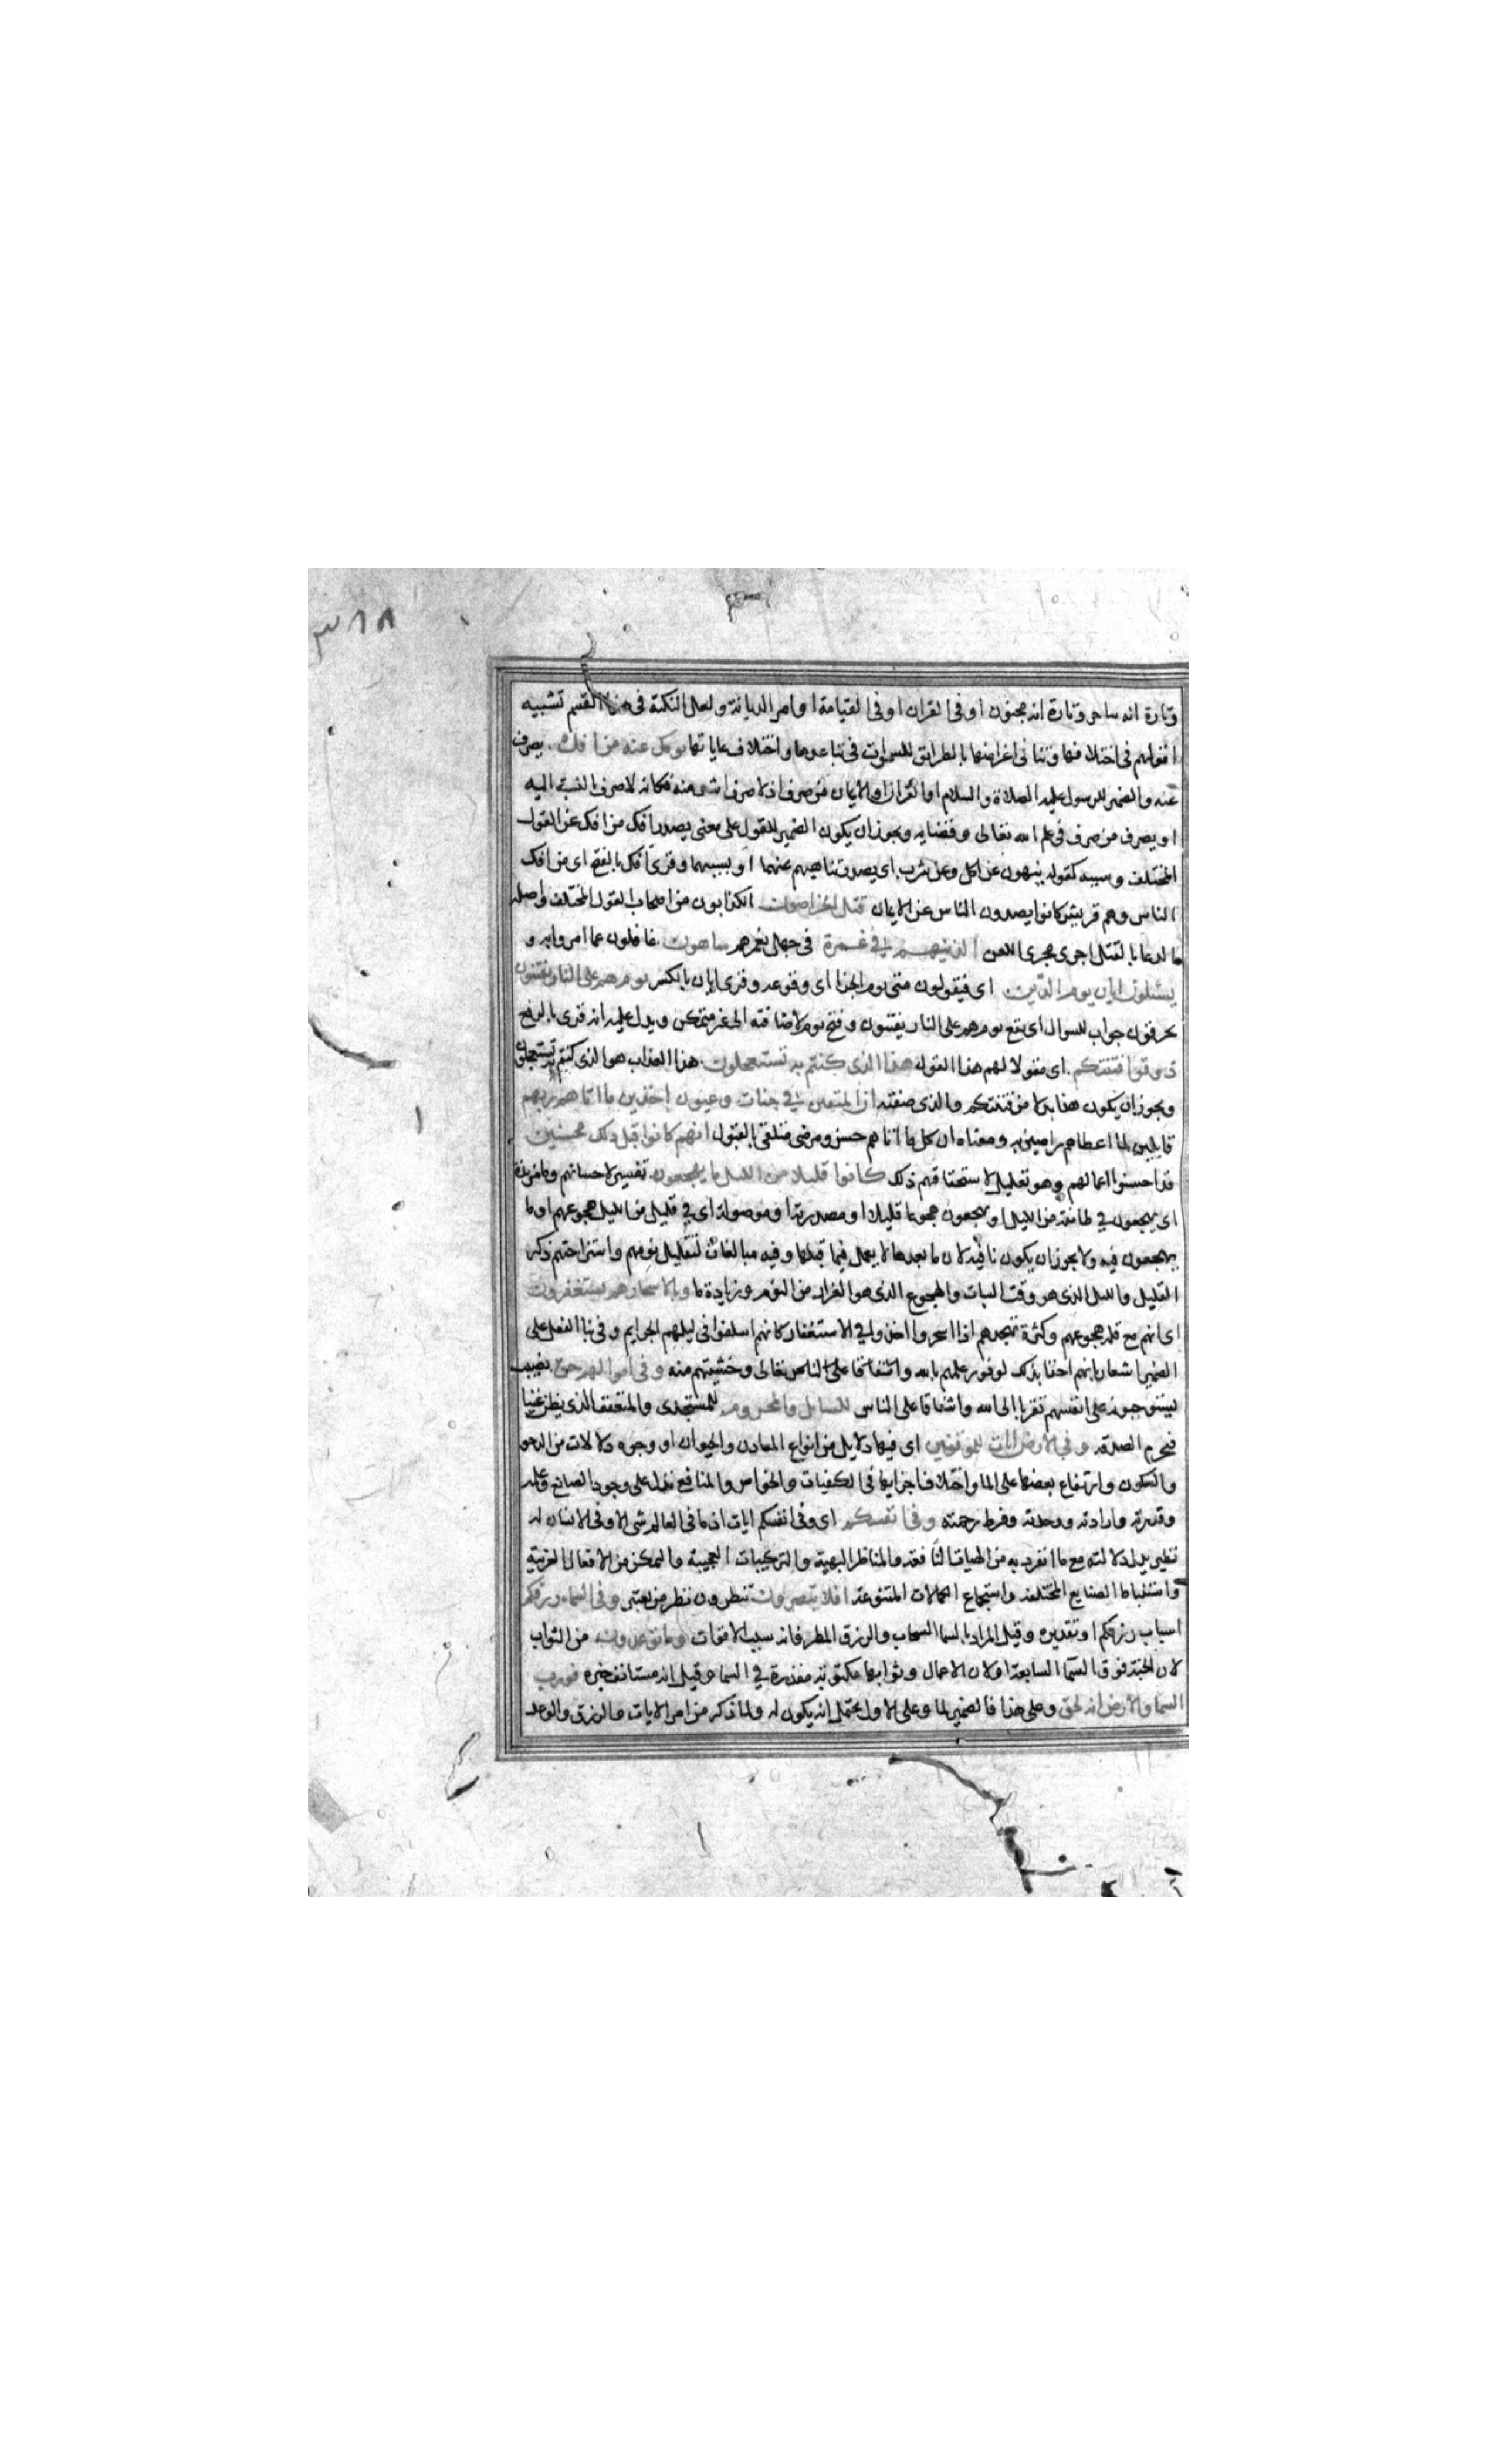 ٣٨٨
وتارة انه ساحر وتارة انه مجنون او فى القران او فى القيامة او امر الديانة ولعل النكتة فى هذا القسم تشبيه
اقوالهم فى اختلافها وتنافى اغراضها بالطرايق للسموات فى تباعدها واختلاف غاياتها يوفك عنه من افك يصرف
عنه والضمير للرسول عليه الصلاة والسلام او القران او الايمان من صرف اذ لا صرف اشد منه فكانه لا صرف بالنسبة اليه
او يصرف من صرف فى علم الله تعالى وقضايه ويجوز ان يكون الضمير للقول على معنى يصدر افك من افك عن القول
المختلف وسببه كقوله ينهون عن اكل وعن شرب اى يصدر تناهيهم عنهما او بسببهما وقرئ افك بالفتح اى من افك
الناس وهم قريش كانوا يصدون الناس عن الايمان قتل الخراصون الكذابون من اصحاب القول المختلف واصله
الدعا بالقتل اجرى مجرى اللعن الذين هم في غمرة فى جهل يغمرهم ساهون غافلون عما امروا به و
يسئلون ايان يوم الدين اى فيقولون متى يوم الجزا اى وقوعه وقرئ ايان بالكسر يوم هم على النار يفتنون
يحرقون جواب للسوال اى يقع يوم هم على النار يفتنون وفتح يوم لاضافته الى غير متمكن ويدل عليه انه قرئ بالرفع
ذوقوا فتنتكم اى مقولا لهم هذا القول هذا الذى كنتم به تستعجلون هذا العذاب هو الذى كنتم به تستعجلون
ويجوز ان يكون هذا بدلا من فتنتكم والذى صفته ان المتقين في جنات وعيون اخذين ما اتاهم ربهم
قابلين لما اعطاهم راضين به ومعناه ان كل ما اتاهم حسن ومرضى متلقى بالقبول انهم كانوا قبل ذلك محسنين
قد احسنوا اعمالهم وهو تعليل لاستحقاقهم ذلك كانوا قليلا من الليل ما يهجعون تفسير لاحسانهم وما مزيدة
اى يهجعون في طائفة من الليل او يهجعون هجوعا قليلا او مصدرية او موصولة اى في قليل من الليل هجوعهم او ما
يهجعون فيه ولا يجوز ان يكون نافية لان ما بعدها لا يعمل فيما قبلها وفيه مبالغات لتقليل نومهم واستراحتهم ذكر
القليل والليل الذى هو وقت السبات والهجوع الذى هو الغرار من النوم وزيادة ما وبالاسحار هم يستغفرون
اى انهم مع قلة هجوعهم وكثرة تهجدهم اذا اسحروا اخذوا في الاستغفار كانهم اسلفوا فى ليلهم الجرايم وفى بنا الفعل على
الضمير اشعار بانهم احقا بذلك لوفور علمهم بالله واشفاقا على الناس تعالى وخشيتهم منه وفى اموالهم حق نصيب
يستوجبونه على انفسهم تقربا الى الله واشفاقا على الناس للسايل والمحروم للمستجدى والمتعفف الذى يظن غنيا
فيحرم الصدقة وفى الارض ايات للموقنين اى فيها دلايل من انواع المعادن والحيوان او وجوه دلالات من الدحو
والسكون وارتفاع بعضها على الما واختلاف اجزايها فى الكيفيات والخواص والمنافع تدل على وجود الصانع وعلمه
وقدرته وارادته ووحدته وفرط رحمته وفى انفسكم اى وفى انفسكم ايات اذ ما فى العالم شى الا وفى الانسان له
نظير يدل دلالته مع ما انفرد به من الهيات النافعة والمناظر البهية والتركيبات العجيبة والتمكن من الافعال الغريبة
واستنباط الصنايع المختلفة واستجماع الكمالات المتنوعة افلا تبصرون تنظرون نظر من يعتبر وفى السماء رزقكم
اسباب رزقكم او تقديره وقيل المراد بالسما السحاب والرزق المطر فانه سبب الاقوات وما توعدون من الثواب
لان الجنة فوق السما السابعة او لان الاعمال وثوابها مكتوبة مقدرة في السما وقيل انه مستانف خبره فورب
السما والارض انه لحق وعلى هذا فالضمير لما وعلى الاول يحتمل انه يكون له ولما ذكر من امر الايات والرزق والوعد